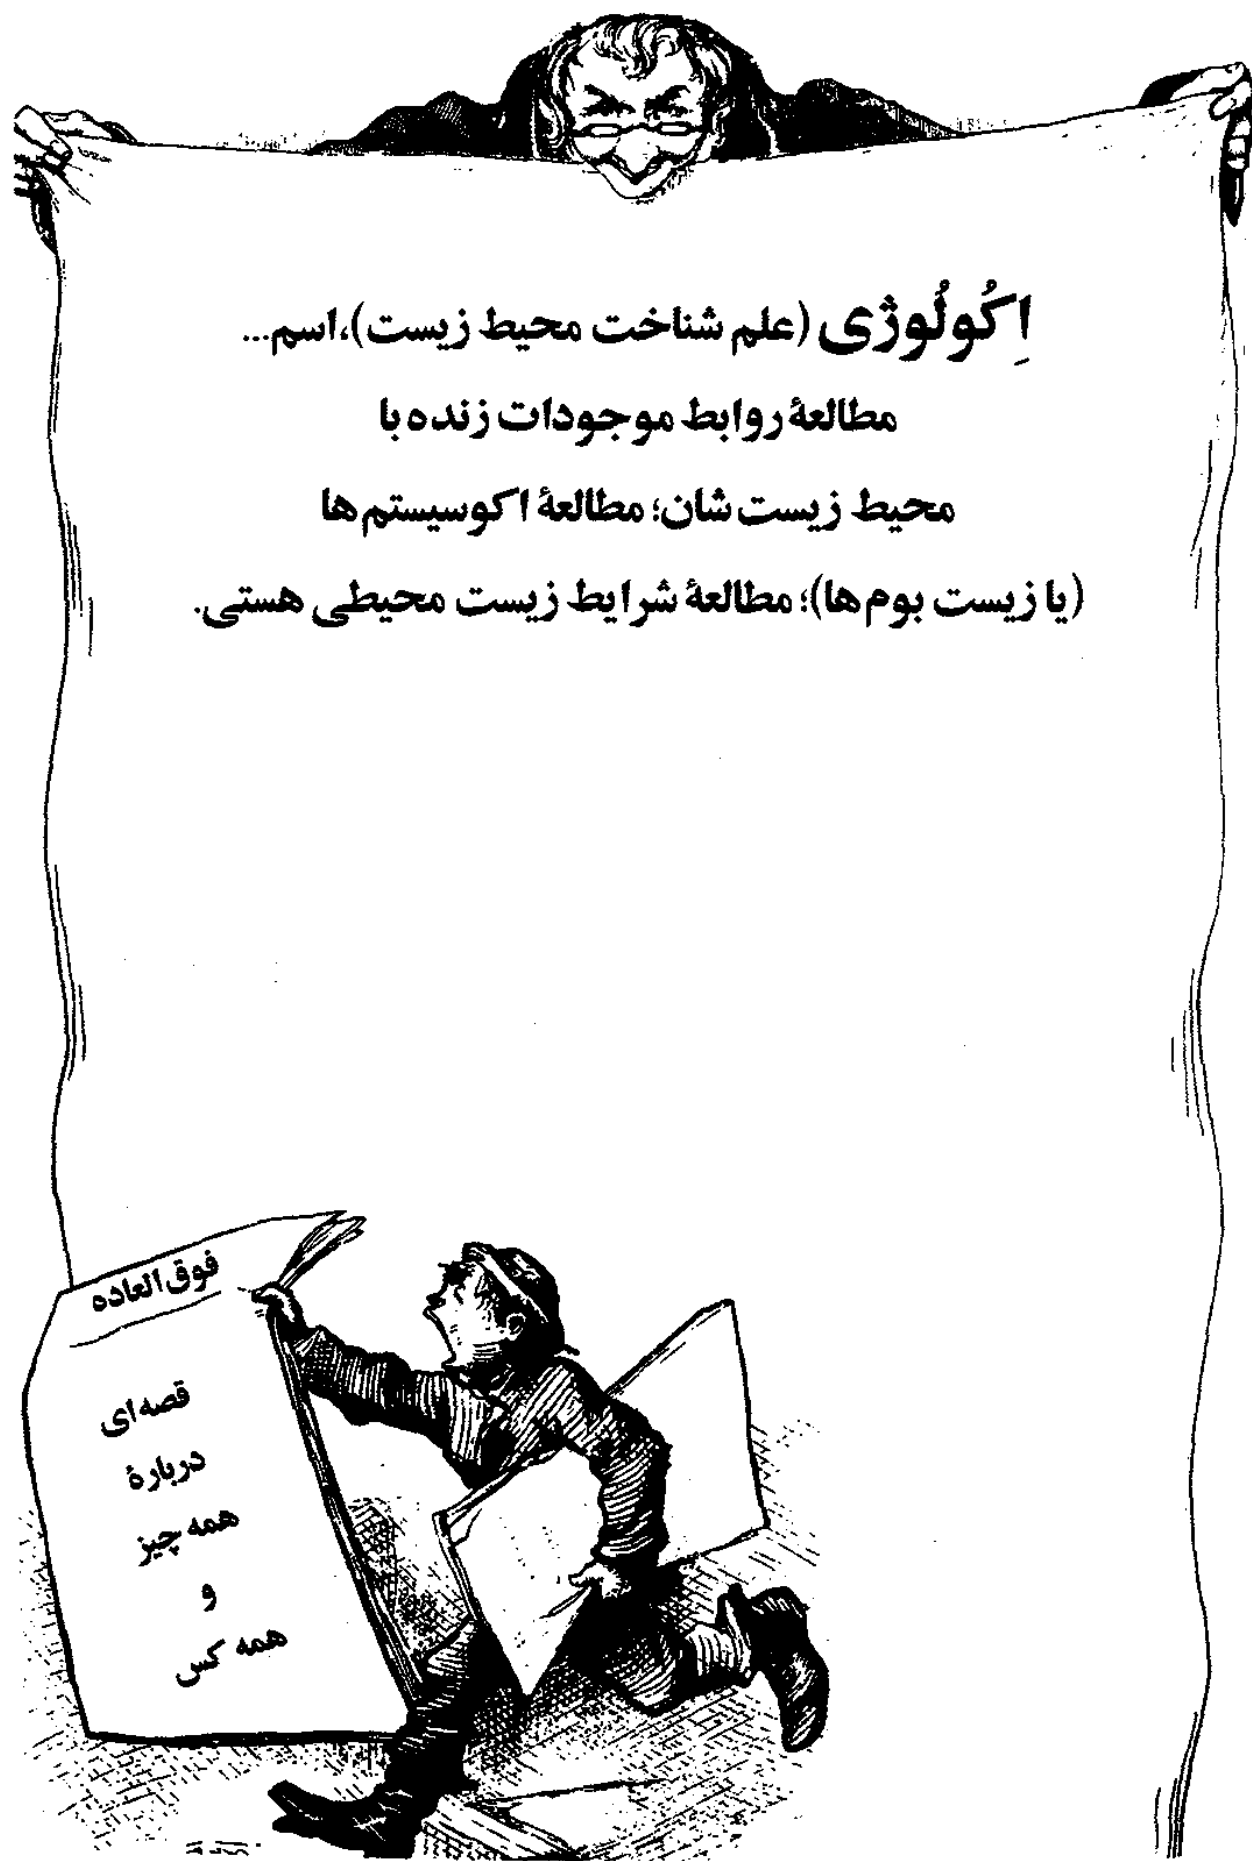 اِکُولُوژی (علم شناخت محیط زیست)، اسم...
مطالعهٔ روابط موجودات زنده با
محیط زیست شان؛ مطالعهٔ اکوسیستم ها
(یا زیست بوم ها)؛ مطالعهٔ شرایط زیست محیطی هستی.
فوق العاده
قصه ای
دربارهٔ
همه چیز
و
همه کس